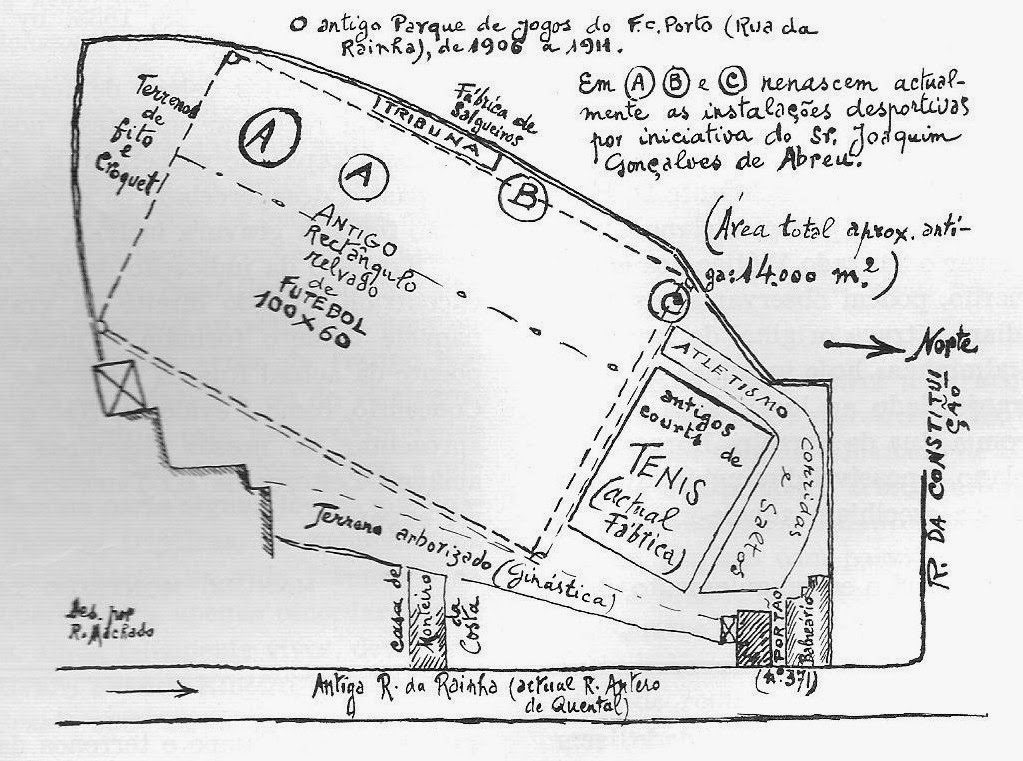 O antigo Parque de Jogos do F.C. Porto (Rua da
Rainha), de 1906 a 1911.
Em A B e C renascem actual-
mente as instalações desportivas
por iniciativa do Sr. Joaquim
Gonçalves de Abreu.
(Área total aprox. anti-
ga: 14.000 m.²)
Terrenos
de
fito
e
Croquet
Fábrica de
Salgueiros
TRIBUNA
A
A
B
C
ANTIGO
Rectângulo
relvado
de
FUTEBOL
100 X 60
Norte
R. DA CONSTITUI
ÇÃO
ATLETISMO
Corridas
e
Saltos
antigos
courts de
TENIS
(actual
Fábrica)
Terreno arborizado (Ginástica)
casa de
Monteiro
da
Costa
PORTÃO
Balneário
(nº 371)
Des. por
R. Machado
Antiga R. da Rainha (actual R. Antero
de Quental)